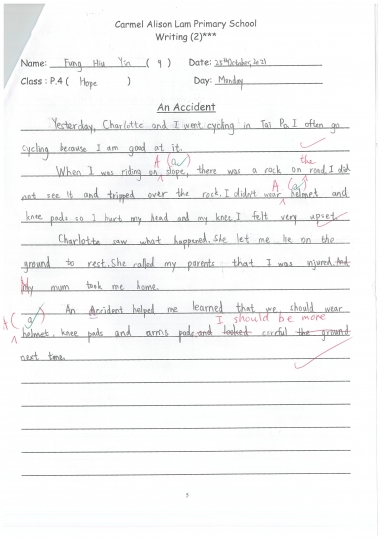 Carmel Alison Lam Primary School
Writing (2)***
Name: Fung Hiu Yin ( 9 ) Date: 25th October, 2021
Class : P.4 ( Hope ) Day: Monday
An Accident
Yesterday, Charlotte and I went cycling in Tai Po. I often go
cycling because I am good at it.
A (a) the
When I was riding on slope, there was a rock on road. I did
A (a)
not see it and tripped over the rock. I didn't wear helmet and
knee pads so I hurt my head and my knee. I felt very upset.
Charlotte saw what happened. She let me lie on the
ground to rest. She called my parents that I was injured. And
My mum took me home.
An Accident helped me learned that we should wear
A (a) I should be more
helmet, knee pads and arms pads and looked careful the ground
next time.
5